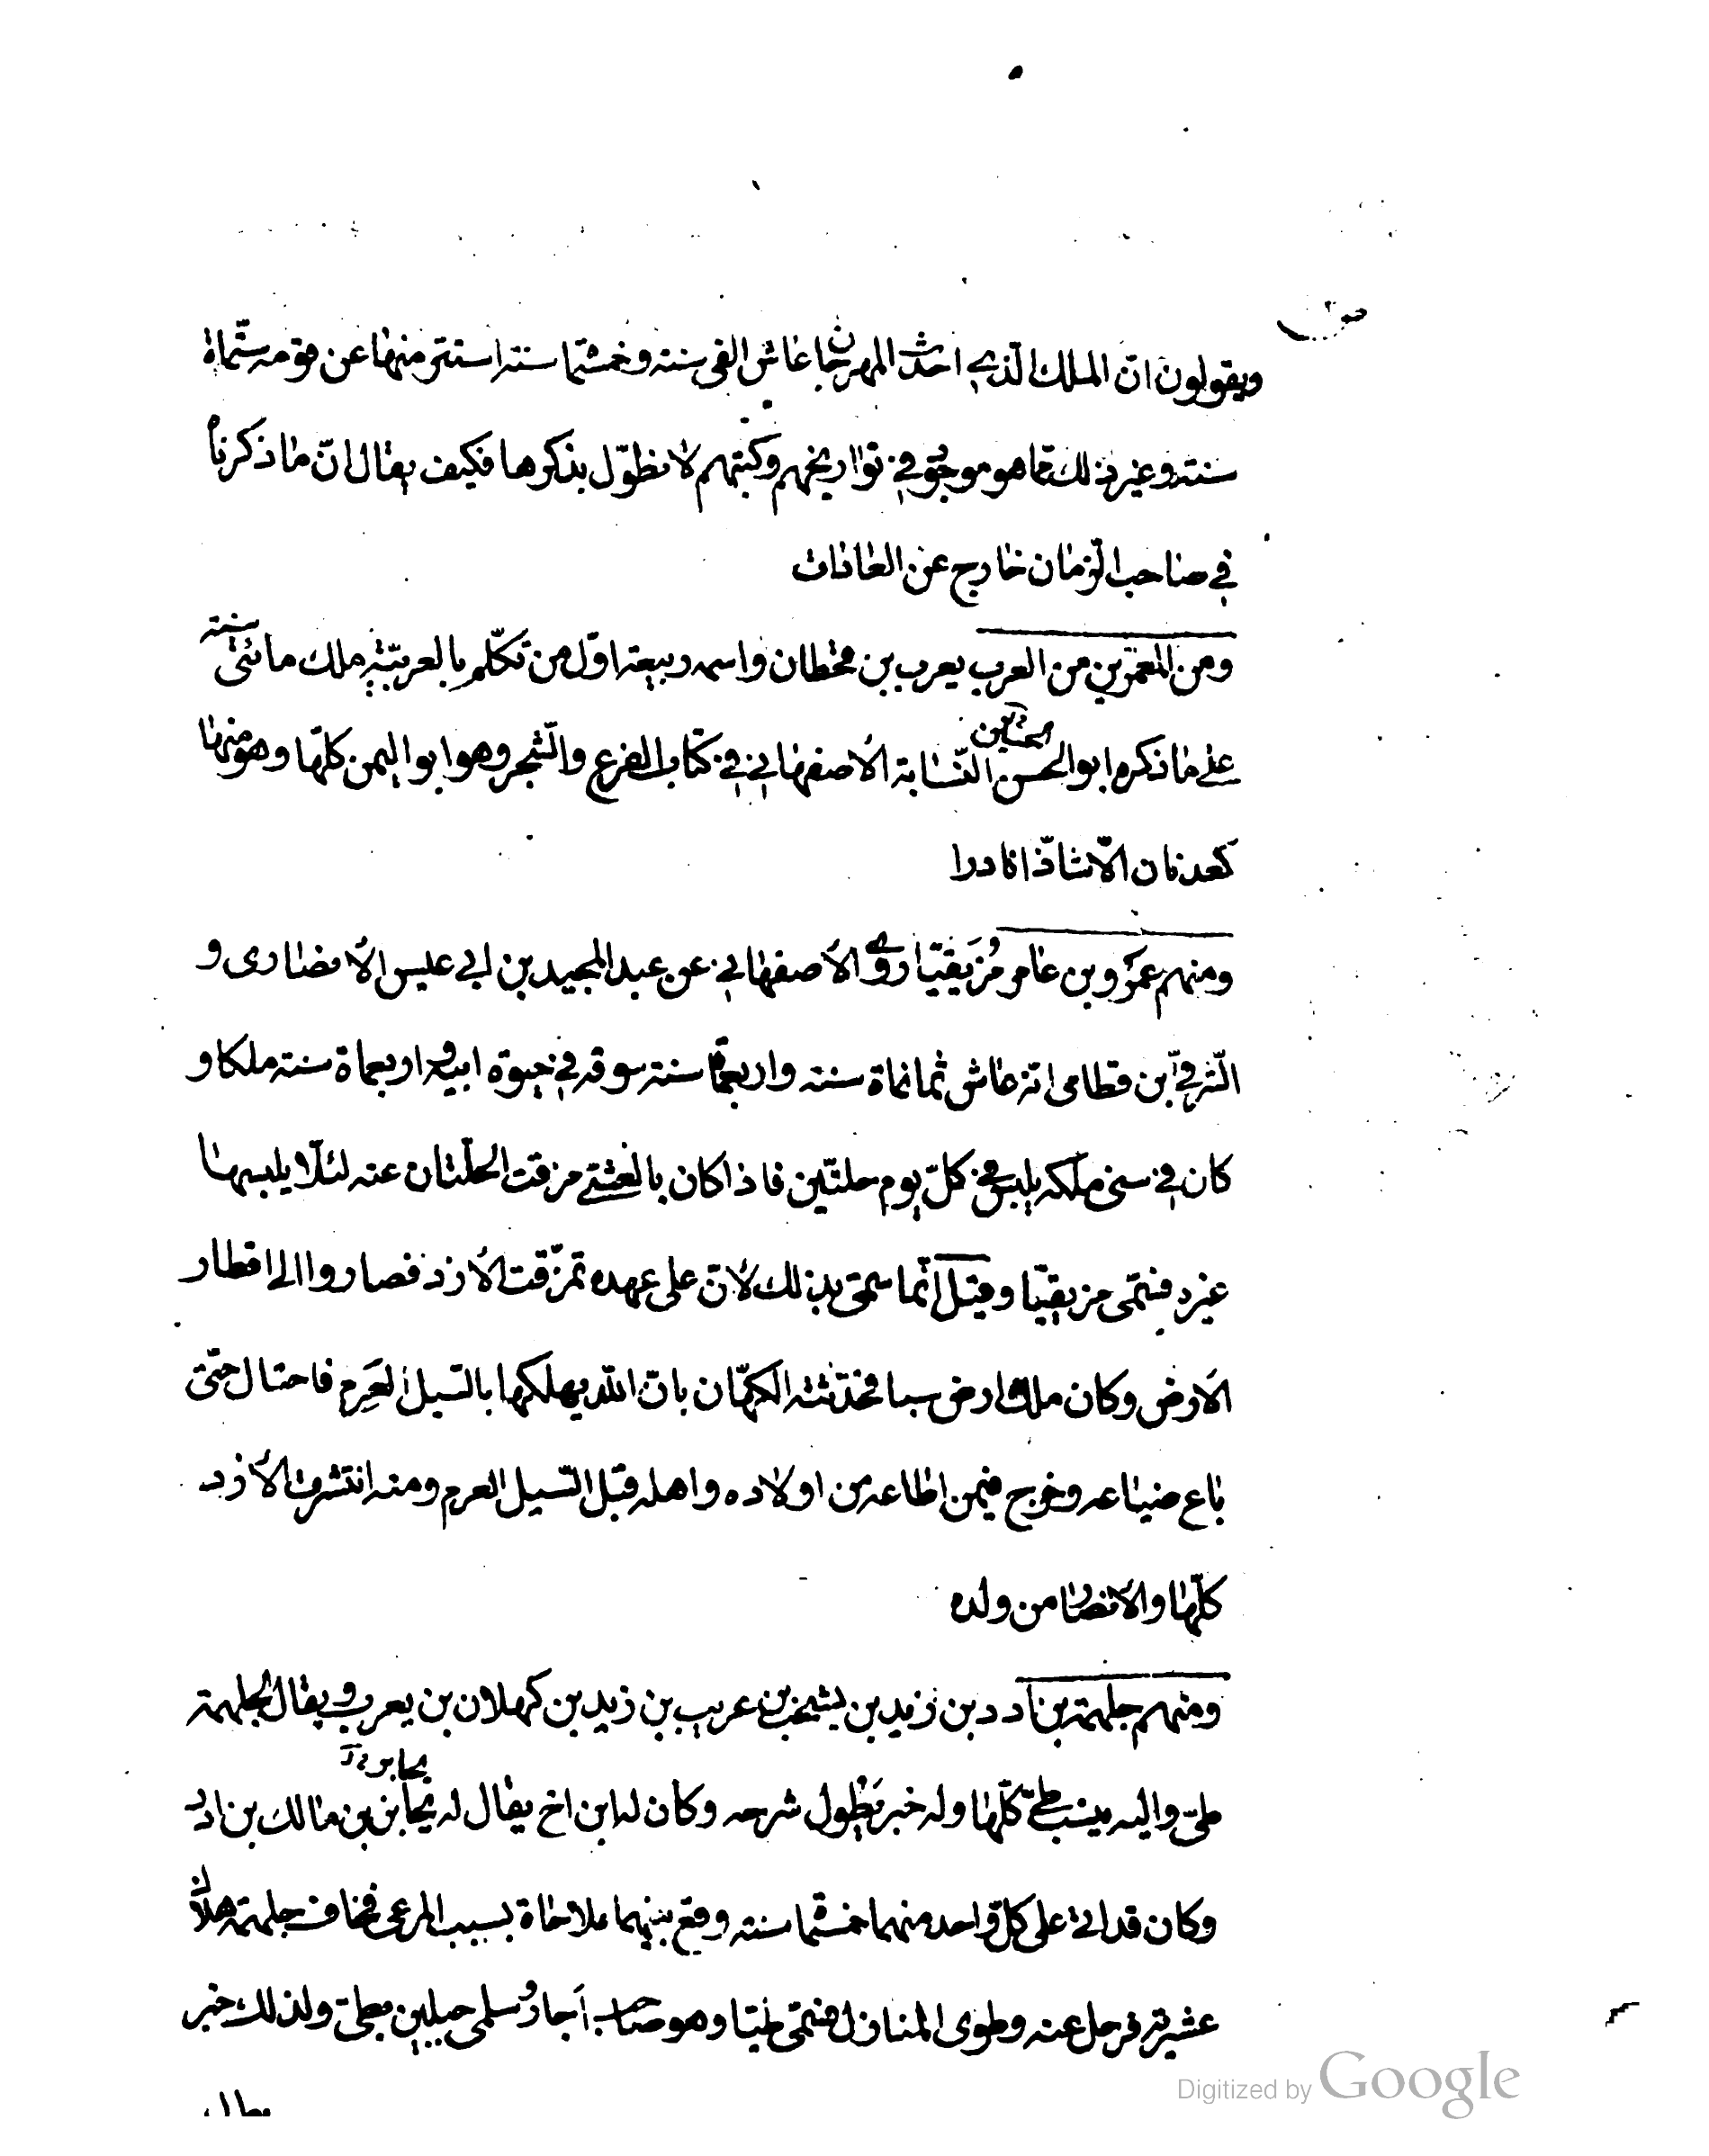 ويقولون انّ الملك الّذي احدث المهرجان عاش الفى سنه وخمسمّا سنه استتر منها عن قومه ستّماة
سنة وغير ذلك ممّا هو موجود في تواريخهم وكتبهم لا نطوّل بذكرها فكيف يقال انّ ما ذكرناه
في صاحب الزّمان خارج عن العادات
ومن المعمّرين من العرب يعرب بن قحطان واسمه ربيعة اوّل من تكلّم بالعربيّة ملك مائتى سنة
على ما ذكره ابو الحسن النّسّابة الأصفهاني في كتاب الفرع والشّجر وهو ابو اليمن كلّها وهو منها
كعدنان الّا شاذّا نادرا
ومنهم عمرو بن عامر مُزَيقيّا روى الأصفهاني عن عبد المجيد بن ابي عيس الأنصارى و
الشّرقيّ بن قطامى انّه عاش ثمانماة سنه واربعمّا سنة سوقه في حيوة ابيه واربعماة سنه ملكا و
كان في سنى ملكه يلبس في كلّ يوم حلّتين فاذا كان بالعشىّ مزقت الحلّتان عنه لئلّا يلبسها
غيره فسمّى مزيقيّا وقيل انّما سمّى بذلك لأنّ على عهده تمزّقت الأزد فصاروا الى اقطار
الأرض وكان ملك ارض سبا فحدّثته الكهّان بانّ الله يهلكها بالسّيل العَرِم فاحتال حتّى
باع ضياعه وخرج فيمن اطاعه من اولاده واهله قبل السّيل العرم ومنه انتشرت الأزد
كلّها والأنصار من ولده
ومنهم جلهمة بن ادد بن زيد بن يشجب بن عريب بن زيد بن كهلان بن يعرب ويقال لجلهمة
طىّ واليه ينسب طىّ كلّها وله خبر يطول شرحه وكان له ابن اخ يقال له يحابر بن مالك بن ادد
وكان قد اتى على كلّ واحد منهما خمسمّا سنه وقع بينهما ملاحاة بسبب المرعى فخاف جلهمة هلاك
عشيرته فرحل عنه وطوى المنازل فسمّى طيّا وهو صاحب أجا وسلمى جبلين بطىّ ولذلك خبر